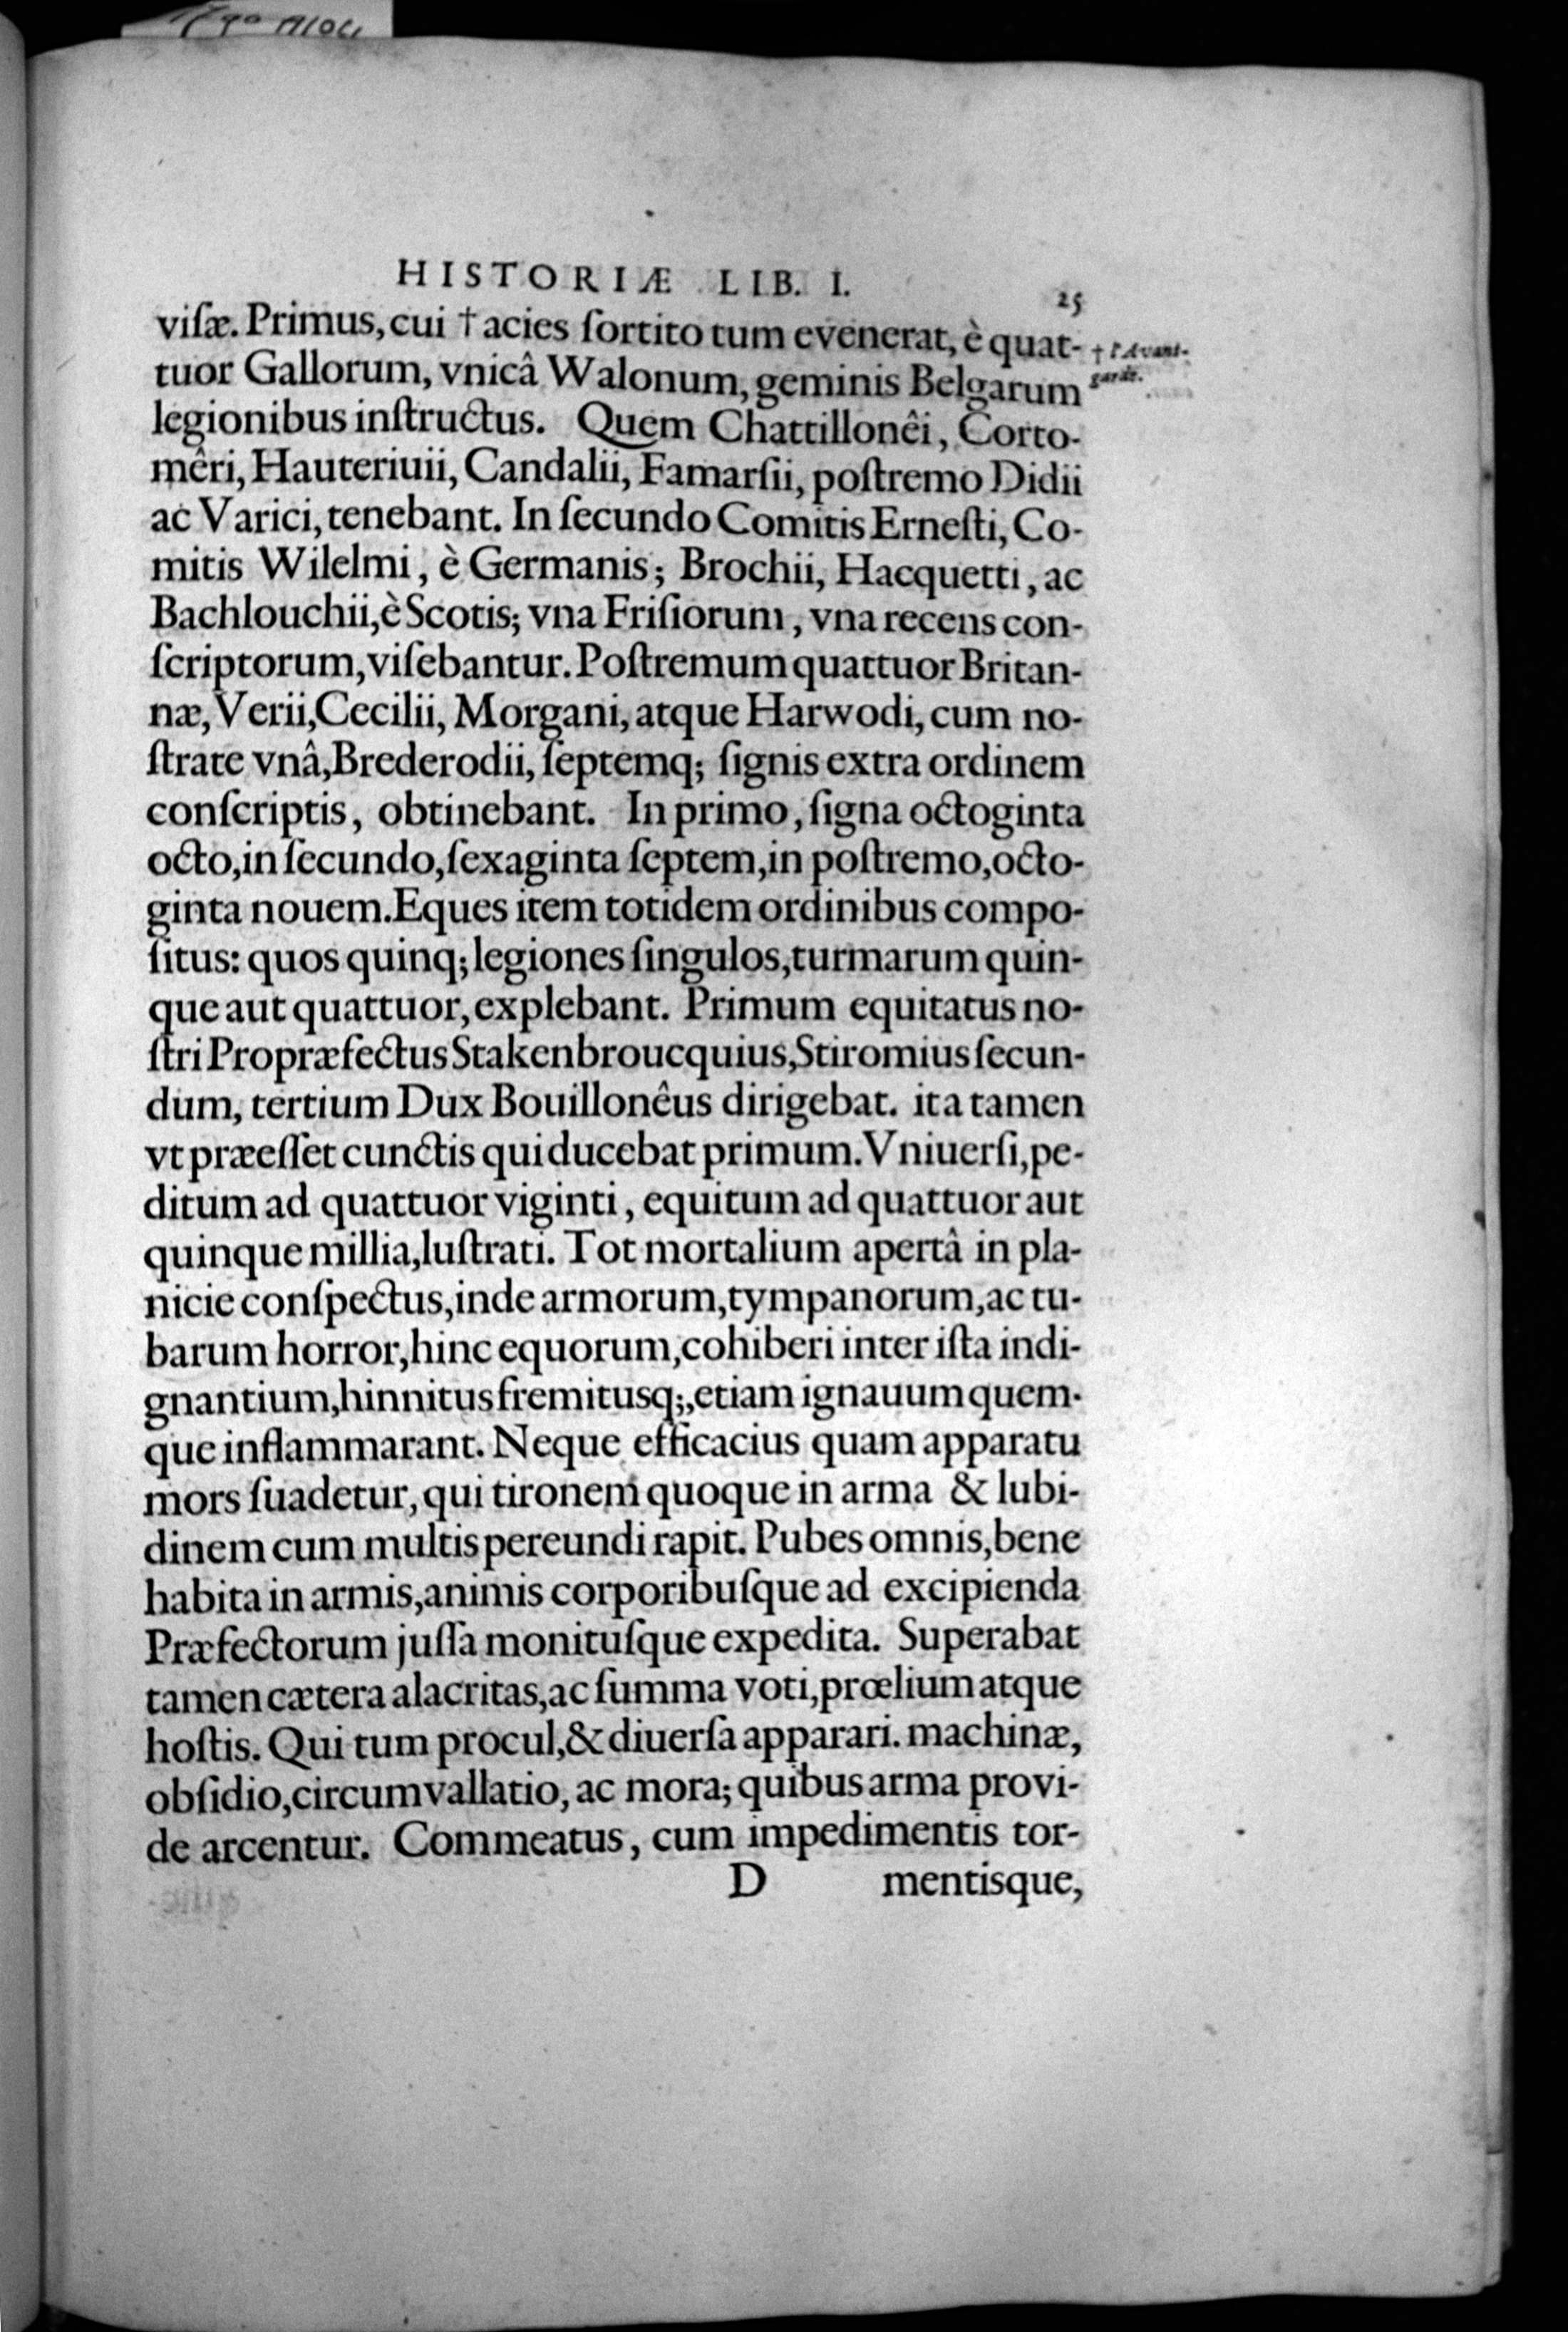 HISTORIÆ LIB. I.
25
viſæ. Primus, cui † acies ſortito tum evenerat, è quat-
† l'Avant-
tuor Gallorum, vnicâ Walonum, geminis Belgarum
garde.
legionibus inſtructus. Quem Chattillonêi, Corto-
mêri, Hauteriuii, Candalii, Famarſii, poſtremo Didii
ac Varici, tenebant. In ſecundo Comitis Erneſti, Co-
mitis Wilelmi, è Germanis; Brochii, Hacquetti, ac
Bachlouchii, è Scotis; vna Friſiorum, vna recens con-
ſcriptorum, viſebantur. Poſtremum quattuor Britan-
næ, Verii, Cecilii, Morgani, atque Harwodi, cum no-
ſtrate vnâ, Brederodii, ſeptemq; ſignis extra ordinem
conſcriptis, obtinebant. In primo, ſigna octoginta
octo, in ſecundo, ſexaginta ſeptem, in poſtremo, octo-
ginta nouem. Eques item totidem ordinibus compo-
ſitus: quos quinq; legiones ſingulos, turmarum quin-
que aut quattuor, explebant. Primum equitatus no-
ſtri Propræfectus Stakenbroucquius, Stiromius ſecun-
dum, tertium Dux Bouillonêus dirigebat. ita tamen
vt præeſſet cunctis qui ducebat primum. Vniuerſi, pe-
ditum ad quattuor viginti, equitum ad quattuor aut
quinque millia, luſtrati. Tot mortalium apertâ in pla-
nicie conſpectus, inde armorum, tympanorum, ac tu-
barum horror, hinc equorum, cohiberi inter iſta indi-
gnantium, hinnitus fremitusq;, etiam ignauum quem-
que inflammarant. Neque efficacius quam apparatu
mors ſuadetur, qui tironem quoque in arma & lubi-
dinem cum multis pereundi rapit. Pubes omnis, bene
habita in armis, animis corporibuſque ad excipienda
Præfectorum juſſa monituſque expedita. Superabat
tamen cætera alacritas, ac ſumma voti, prœlium atque
hoſtis. Qui tum procul, & diuerſa apparari. machinæ,
obſidio, circumvallatio, ac mora; quibus arma provi-
de arcentur. Commeatus, cum impedimentis tor-
D mentisque,